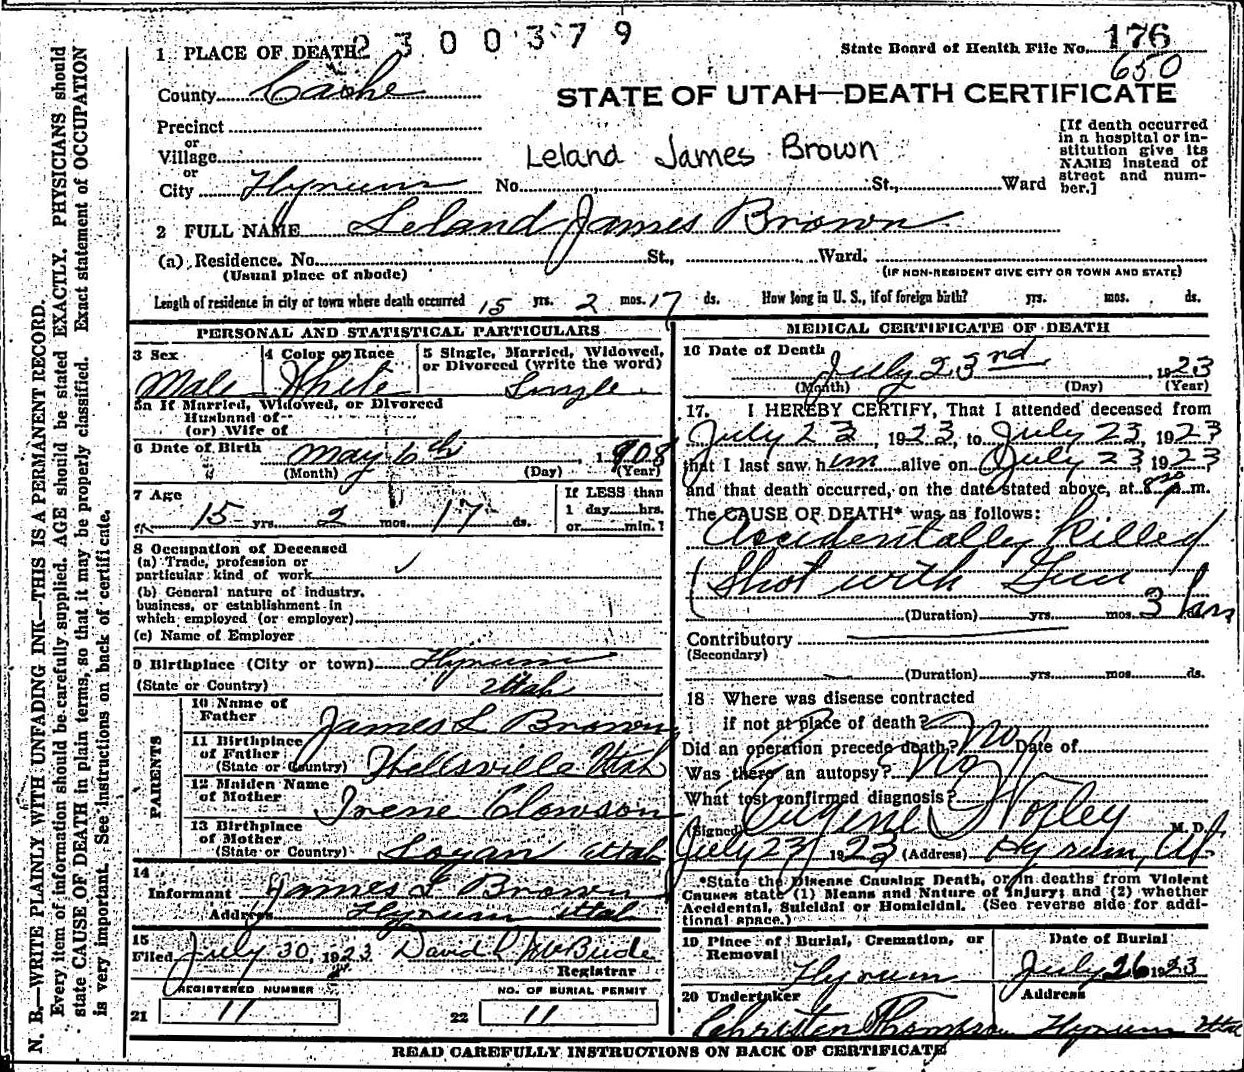 2300379
1 PLACE OF DEATH
State Board of Health File No. 176
650
County Cache
STATE OF UTAH—DEATH CERTIFICATE
Precinct
or
Village
or
City Hyrum No. St., Ward
Leland James Brown
[If death occurred
in a hospital or in-
stitution give its
NAME instead of
street and num-
ber.]
2 FULL NAME Leland James Brown
(a) Residence. No. St., Ward.
(Usual place of abode)
(IF NON-RESIDENT GIVE CITY OR TOWN AND STATE)
Length of residence in city or town where death occurred 15 yrs. 2 mos. 17 ds. How long in U. S., if of foreign birth? yrs. mos. ds.
PERSONAL AND STATISTICAL PARTICULARS
3 Sex
Male
4 Color or Race
White
5 Single, Married, Widowed,
or Divorced (write the word)
Single
5a If Married, Widowed, or Divorced
Husband of
(or) Wife of
6 Date of Birth May 6th, 1908
(Month) (Day) (Year)
7 Age
15 yrs. 2 mos. 17 ds.
If LESS than
1 day hrs.
or min.?
8 Occupation of Deceased
(a) Trade, profession or
particular kind of work
(b) General nature of industry,
business, or establishment in
which employed (or employer)
(c) Name of Employer
9 Birthplace (City or town) Hyrum
(State or Country) Utah
PARENTS
10 Name of
Father James L Brown
11 Birthplace
of Father
(State or Country) Wellsville Utah
12 Maiden Name
of Mother Irene Clowson
13 Birthplace
of Mother
(State or Country) Logan Utah
14
Informant James L Brown
Address Hyrum Utah
15
Filed July 30, 1923 David McBride
Registrar
REGISTERED NUMBER
21 11
NO. OF BURIAL PERMIT
22 11
MEDICAL CERTIFICATE OF DEATH
16 Date of Death
July 23rd, 1923
(Month) (Day) (Year)
17. I HEREBY CERTIFY, That I attended deceased from
July 23, 1923, to July 23, 1923
that I last saw him alive on July 23, 1923
and that death occurred, on the date stated above, at 8 p m.
The CAUSE OF DEATH* was as follows:
Accidentally Killed
(Shot with Gun
(Duration) yrs. mos. 3 hrs
Contributory
(Secondary)
(Duration) yrs. mos. ds.
18 Where was disease contracted
if not at place of death?
Did an operation precede death? No Date of
Was there an autopsy? No
What test confirmed diagnosis?
(Signed) Eugene Worley M. D.
July 23, 1923 (Address) Hyrum, Ut
*State the Disease Causing Death, or in deaths from Violent
Causes state (1) Means and Nature of Injury; and (2) whether
Accidental, Suicidal or Homicidal. (See reverse side for addi-
tional space.)
19 Place of Burial, Cremation, or
Removal
Hyrum
Date of Burial
July 26 1923
20 Undertaker
Christen Thompson
Address
Hyrum Utah
READ CAREFULLY INSTRUCTIONS ON BACK OF CERTIFICATE
N. B.—WRITE PLAINLY WITH UNFADING INK—THIS IS A PERMANENT RECORD.
Every item of information should be carefully supplied. AGE should be stated EXACTLY. PHYSICIANS should
state CAUSE OF DEATH in plain terms, so that it may be properly classified. Exact statement of OCCUPATION
is very important. See instructions on back of certificate.